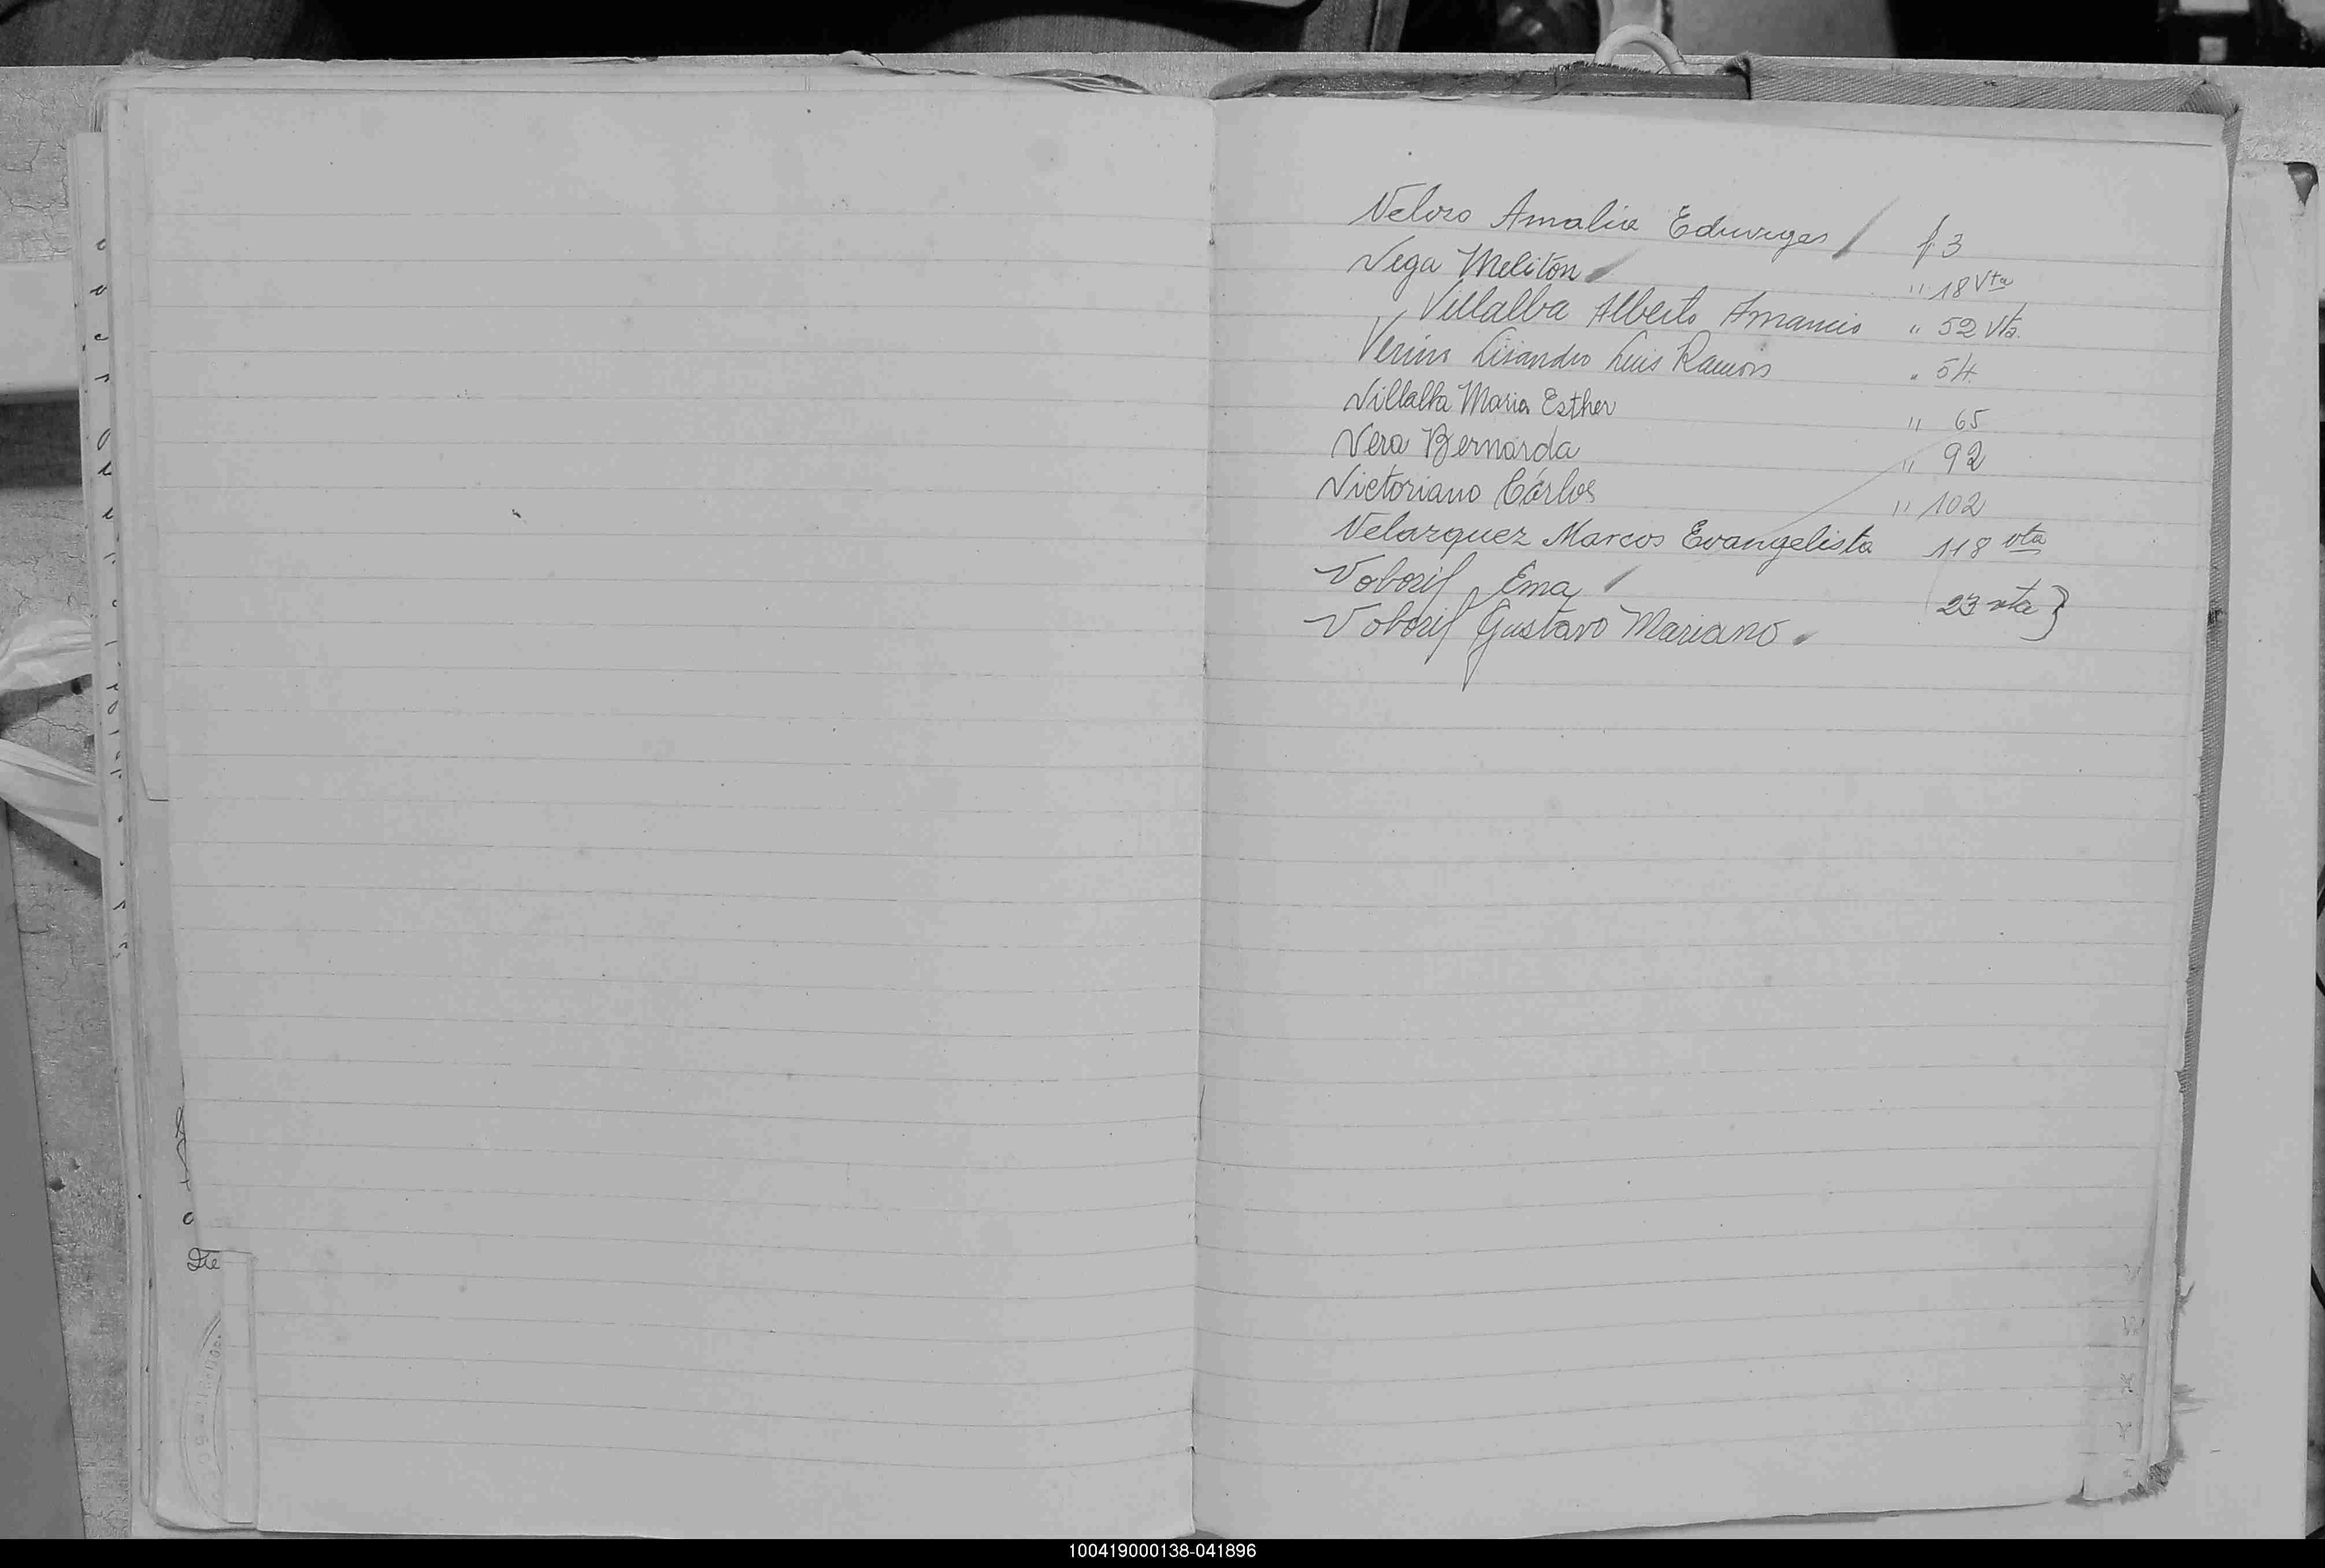 Velozo Amalia Eduviges / f 3
Vega Melitón " 18 Vta
Villalba Alberto Amancio " 52 Vta.
Lisandro Luis Ramón " 54.
Villalba Maria Esther " 65
Vera Bernarda " 92
Victoriano Cárlos " 102
Velazquez Marcos Evangelista 118 vta
Voboril Ema
23 vta }
Voboril Gustavo Mariano.
100419000138-041896